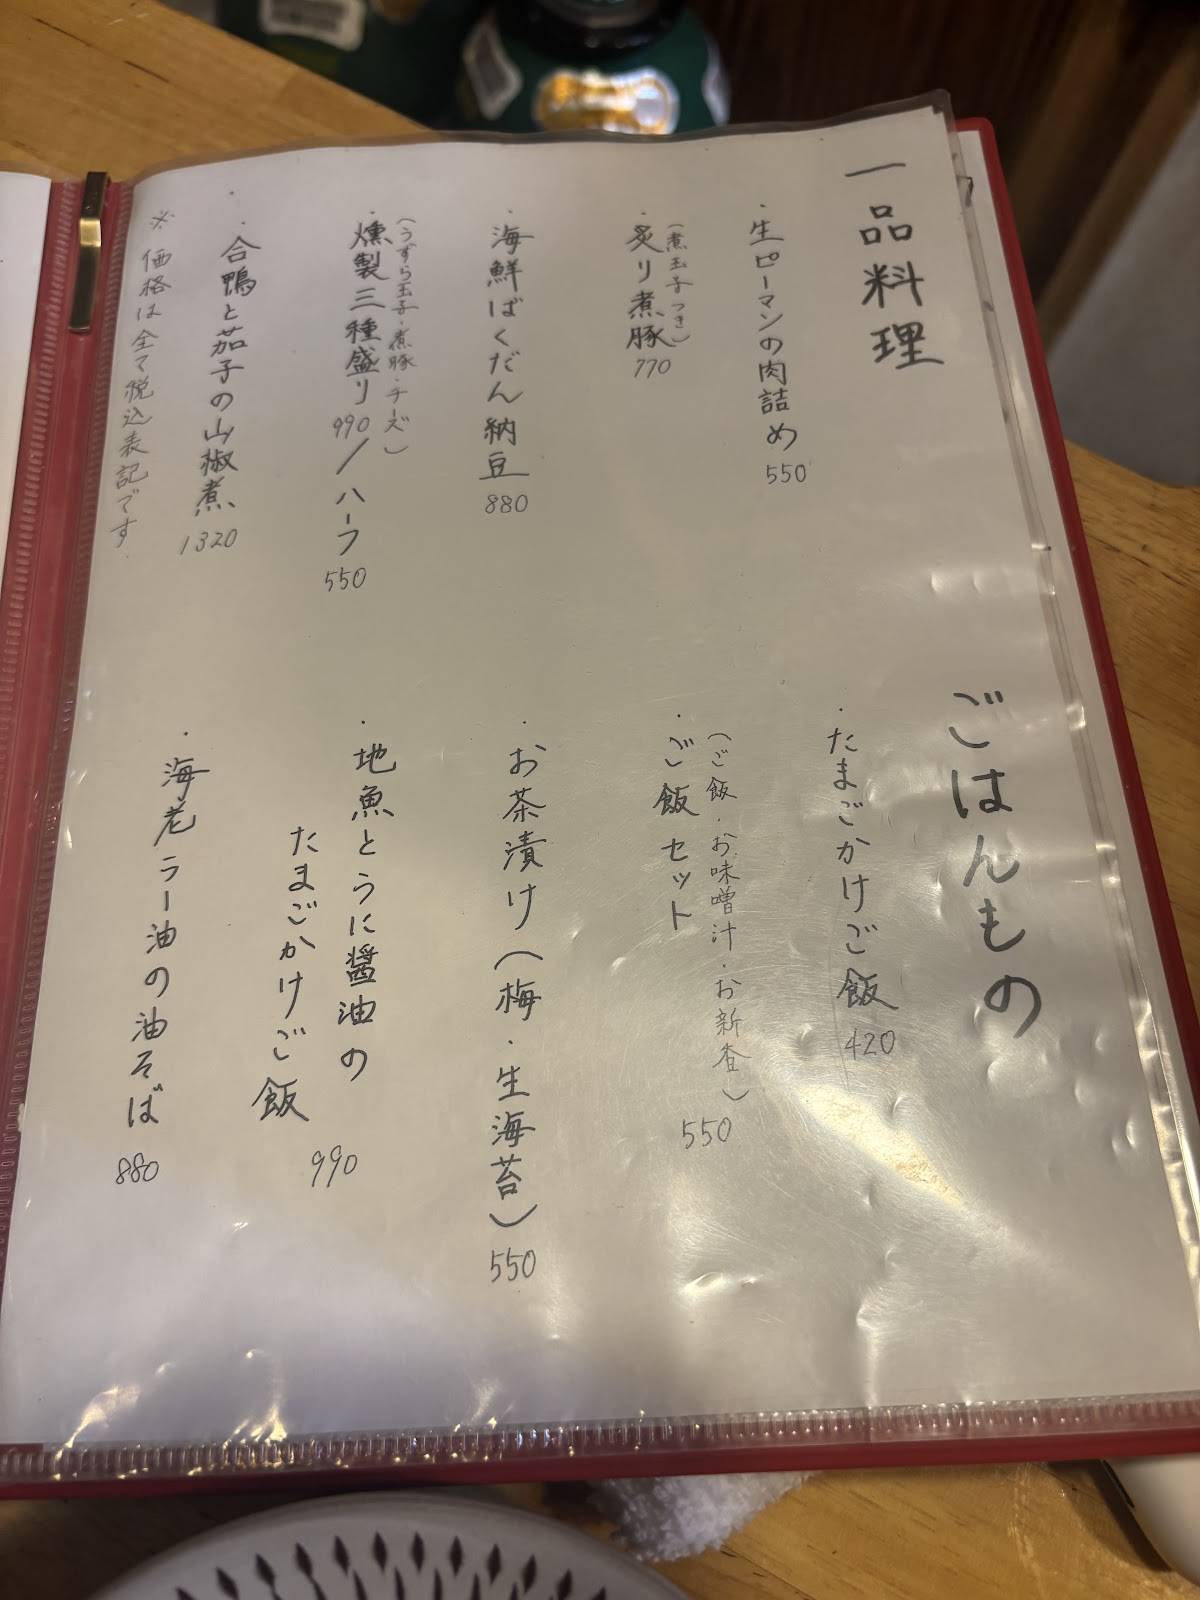 一品料理
・生ピーマンの肉詰め 550
(煮玉子つき)
・炙り煮豚 770
・海鮮ばくだん納豆 880
(うずら玉子・煮豚・チーズ)
・燻製三種盛り 990/ハーフ 550
・合鴨と茄子の山椒煮 1320
※価格は全て税込表記です.
ごはんもの
・たまごかけご飯 420
(ご飯・お味噌汁・お新香)
・ご飯セット 550
・お茶漬け(梅・生海苔) 550
・地魚とうに醤油の
たまごかけご飯 990
・海老ラー油の油そば 880